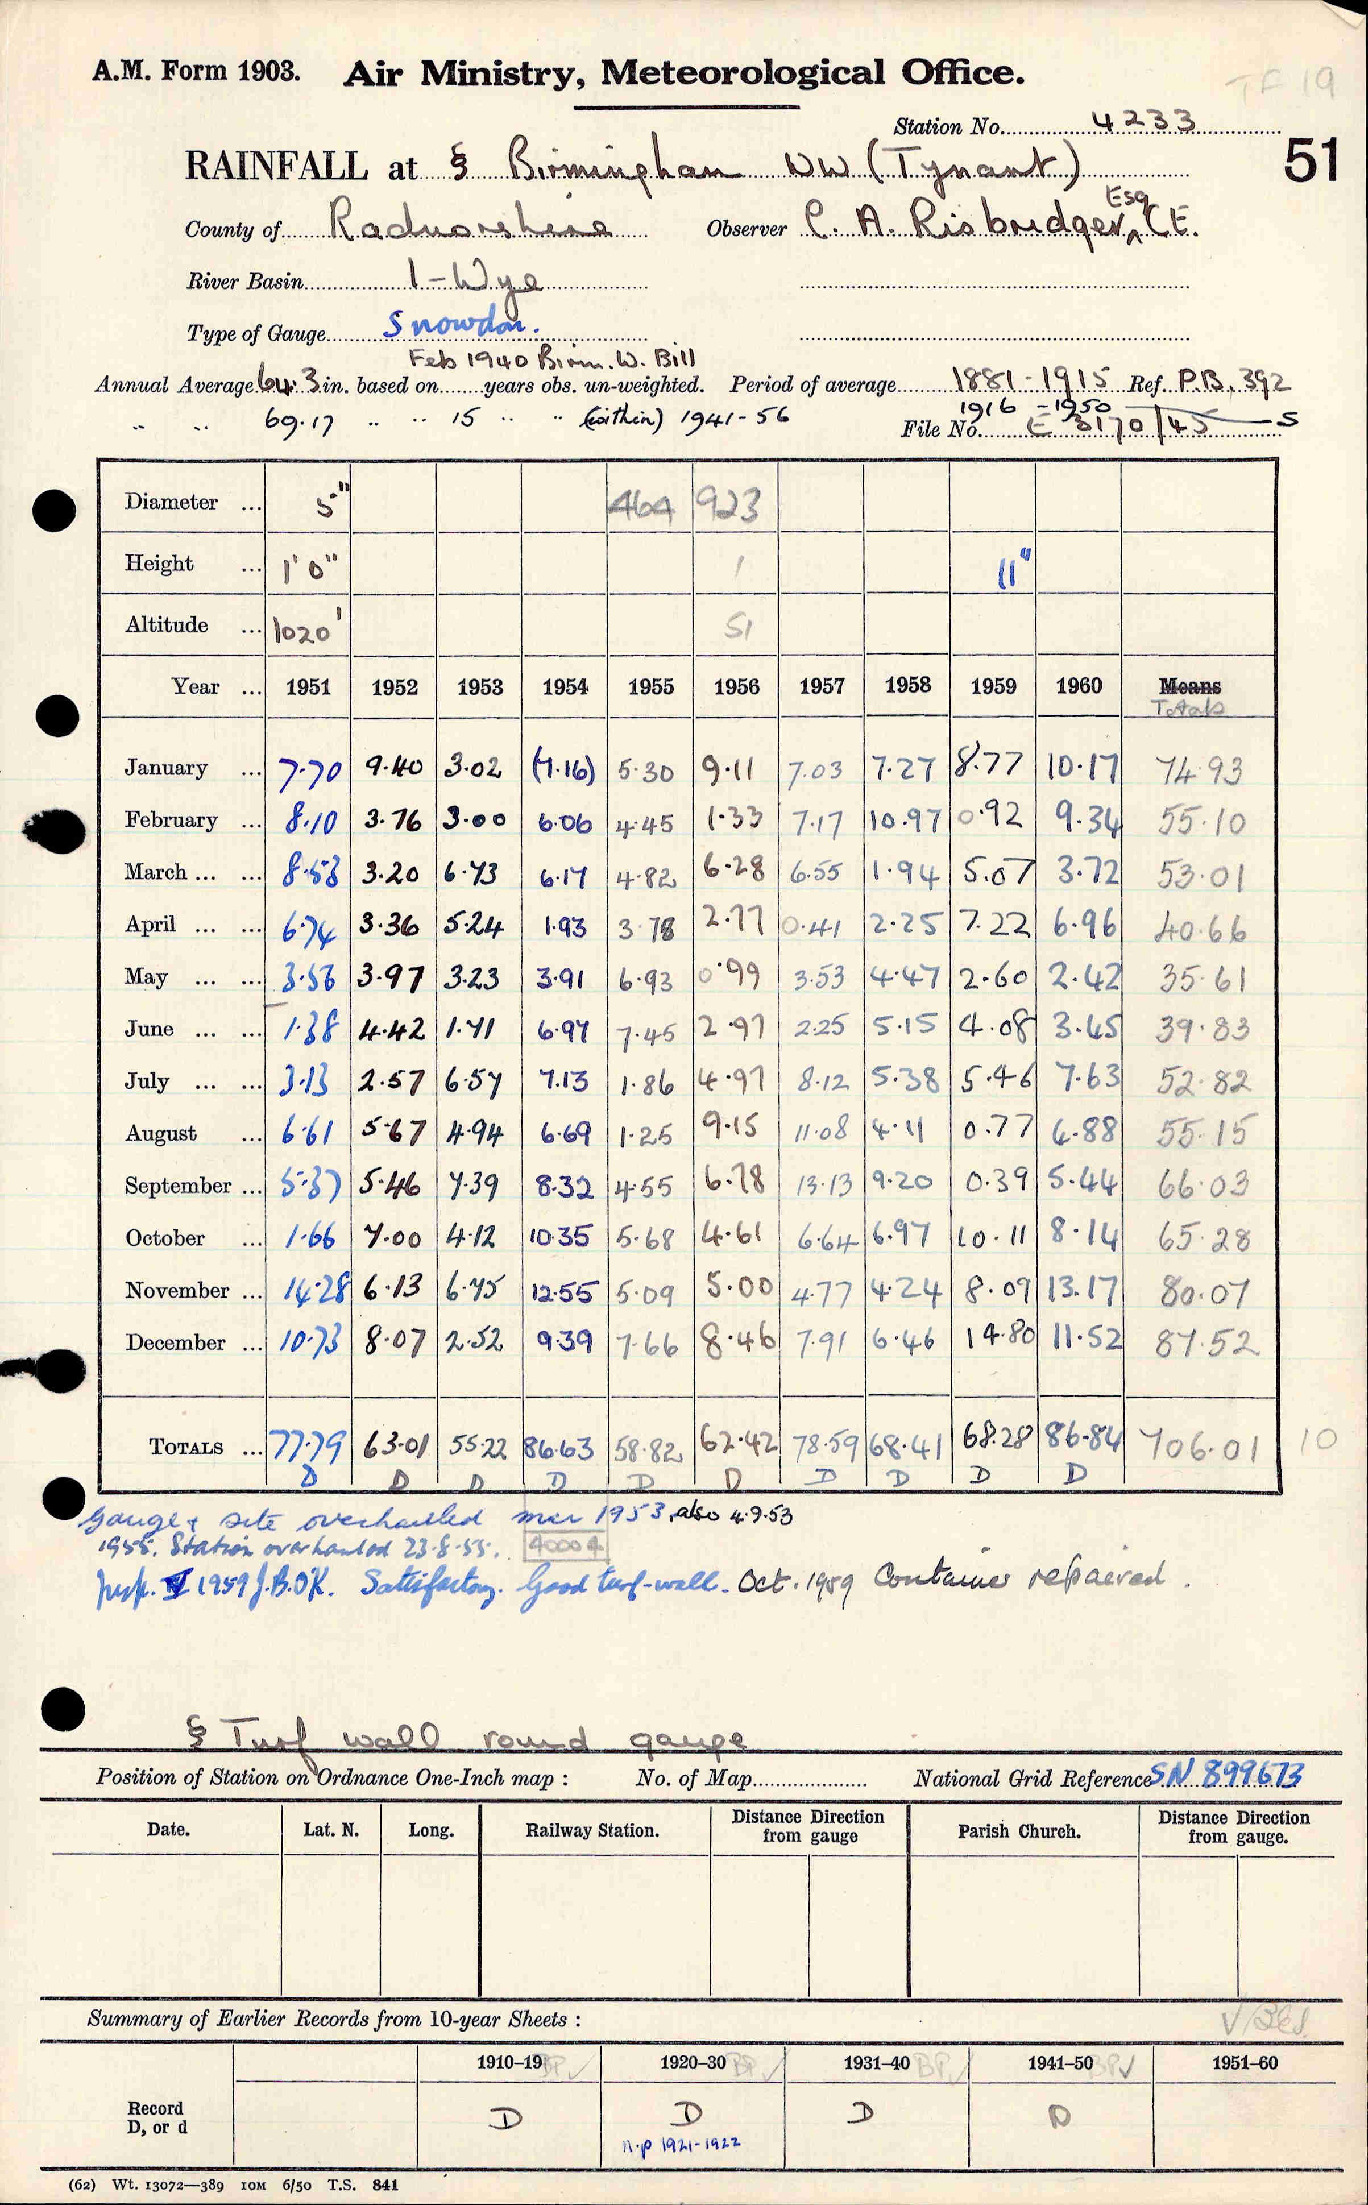 A.M. Form 1903. Air Ministry, Meteorological Office.
TF 19
Station No. 4233
51
RAINFALL at § Birmingham WW (Tynant)
County of Radnorshire Observer C. A. Risbridger, Esq C.E.
River Basin 1 - Wye
Type of Gauge Snowdon.
Feb 1940 Birm. W. Bill
Annual Average 64.3 in. based on years obs. un-weighted. Period of average 1881-1915 Ref. P.B. 392
" " 69.17 " " 15 " " (within) 1941-56 1916 - 1950
File No. E 3170/45 S
Diameter ... 5" 464 923
Height ... 1' 0" 1 11"
Altitude ... 1020' 51
Year ... 1951 1952 1953 1954 1955 1956 1957 1958 1959 1960 Means
Totals
January ... 7.70 9.40 3.02 (7.16) 5.30 9.11 7.03 7.27 8.77 10.17 74.93
February ... 8.10 3.76 3.00 6.06 4.45 1.33 7.17 10.97 0.92 9.34 55.10
March ... ... 8.53 3.20 6.73 6.17 4.82 6.28 6.55 1.94 5.07 3.72 53.01
April ... ... 6.74 3.36 5.24 1.93 3.78 2.77 0.41 2.25 7.22 6.96 40.66
May ... ... 3.56 3.97 3.23 3.91 6.93 0.99 3.53 4.47 2.60 2.42 35.61
June ... ... 1.38 4.42 1.71 6.97 7.45 2.97 2.25 5.15 4.08 3.45 39.83
July ... ... 3.13 2.57 6.57 7.13 1.86 4.97 8.12 5.38 5.46 7.63 52.82
August ... 6.61 5.67 4.94 6.69 1.25 9.15 11.08 4.11 0.77 4.88 55.15
September ... 5.37 5.46 7.39 8.32 4.55 6.78 13.13 9.20 0.39 5.44 66.03
October ... 1.66 7.00 4.12 10.35 5.68 4.61 6.64 6.97 10.11 8.14 65.28
November ... 14.28 6.13 6.75 12.55 5.09 5.00 4.77 4.24 8.09 13.17 80.07
December ... 10.73 8.07 2.52 9.39 7.66 8.46 7.91 6.46 14.80 11.52 87.52
TOTALS ... 77.79 63.01 55.22 86.63 58.82 62.42 78.59 68.41 68.28 86.84 706.01 10
D D D D D D D D D D
Gauge & site overhauled mar 1953, also 4.9.53
1955. Station overhauled 23.8.55. 4000 4
Insp. 1959 J.B. OK. Satisfactory. Good turf-wall. Oct. 1959 Container repaired.
§ Turf wall round gauge
Position of Station on Ordnance One-Inch map : No. of Map National Grid Reference SN 899673
Date. Lat. N. Long. Railway Station. Distance Direction from gauge Parish Church. Distance Direction from gauge.
Summary of Earlier Records from 10-year Sheets :
1910–19 BP✓ 1920–30 BP✓ 1931–40 BP✓ 1941–50 BP✓ 1951–60
Record D, or d D D D D
n.p 1921-1922
(62) Wt. 13072—389 10M 6/50 T.S. 841